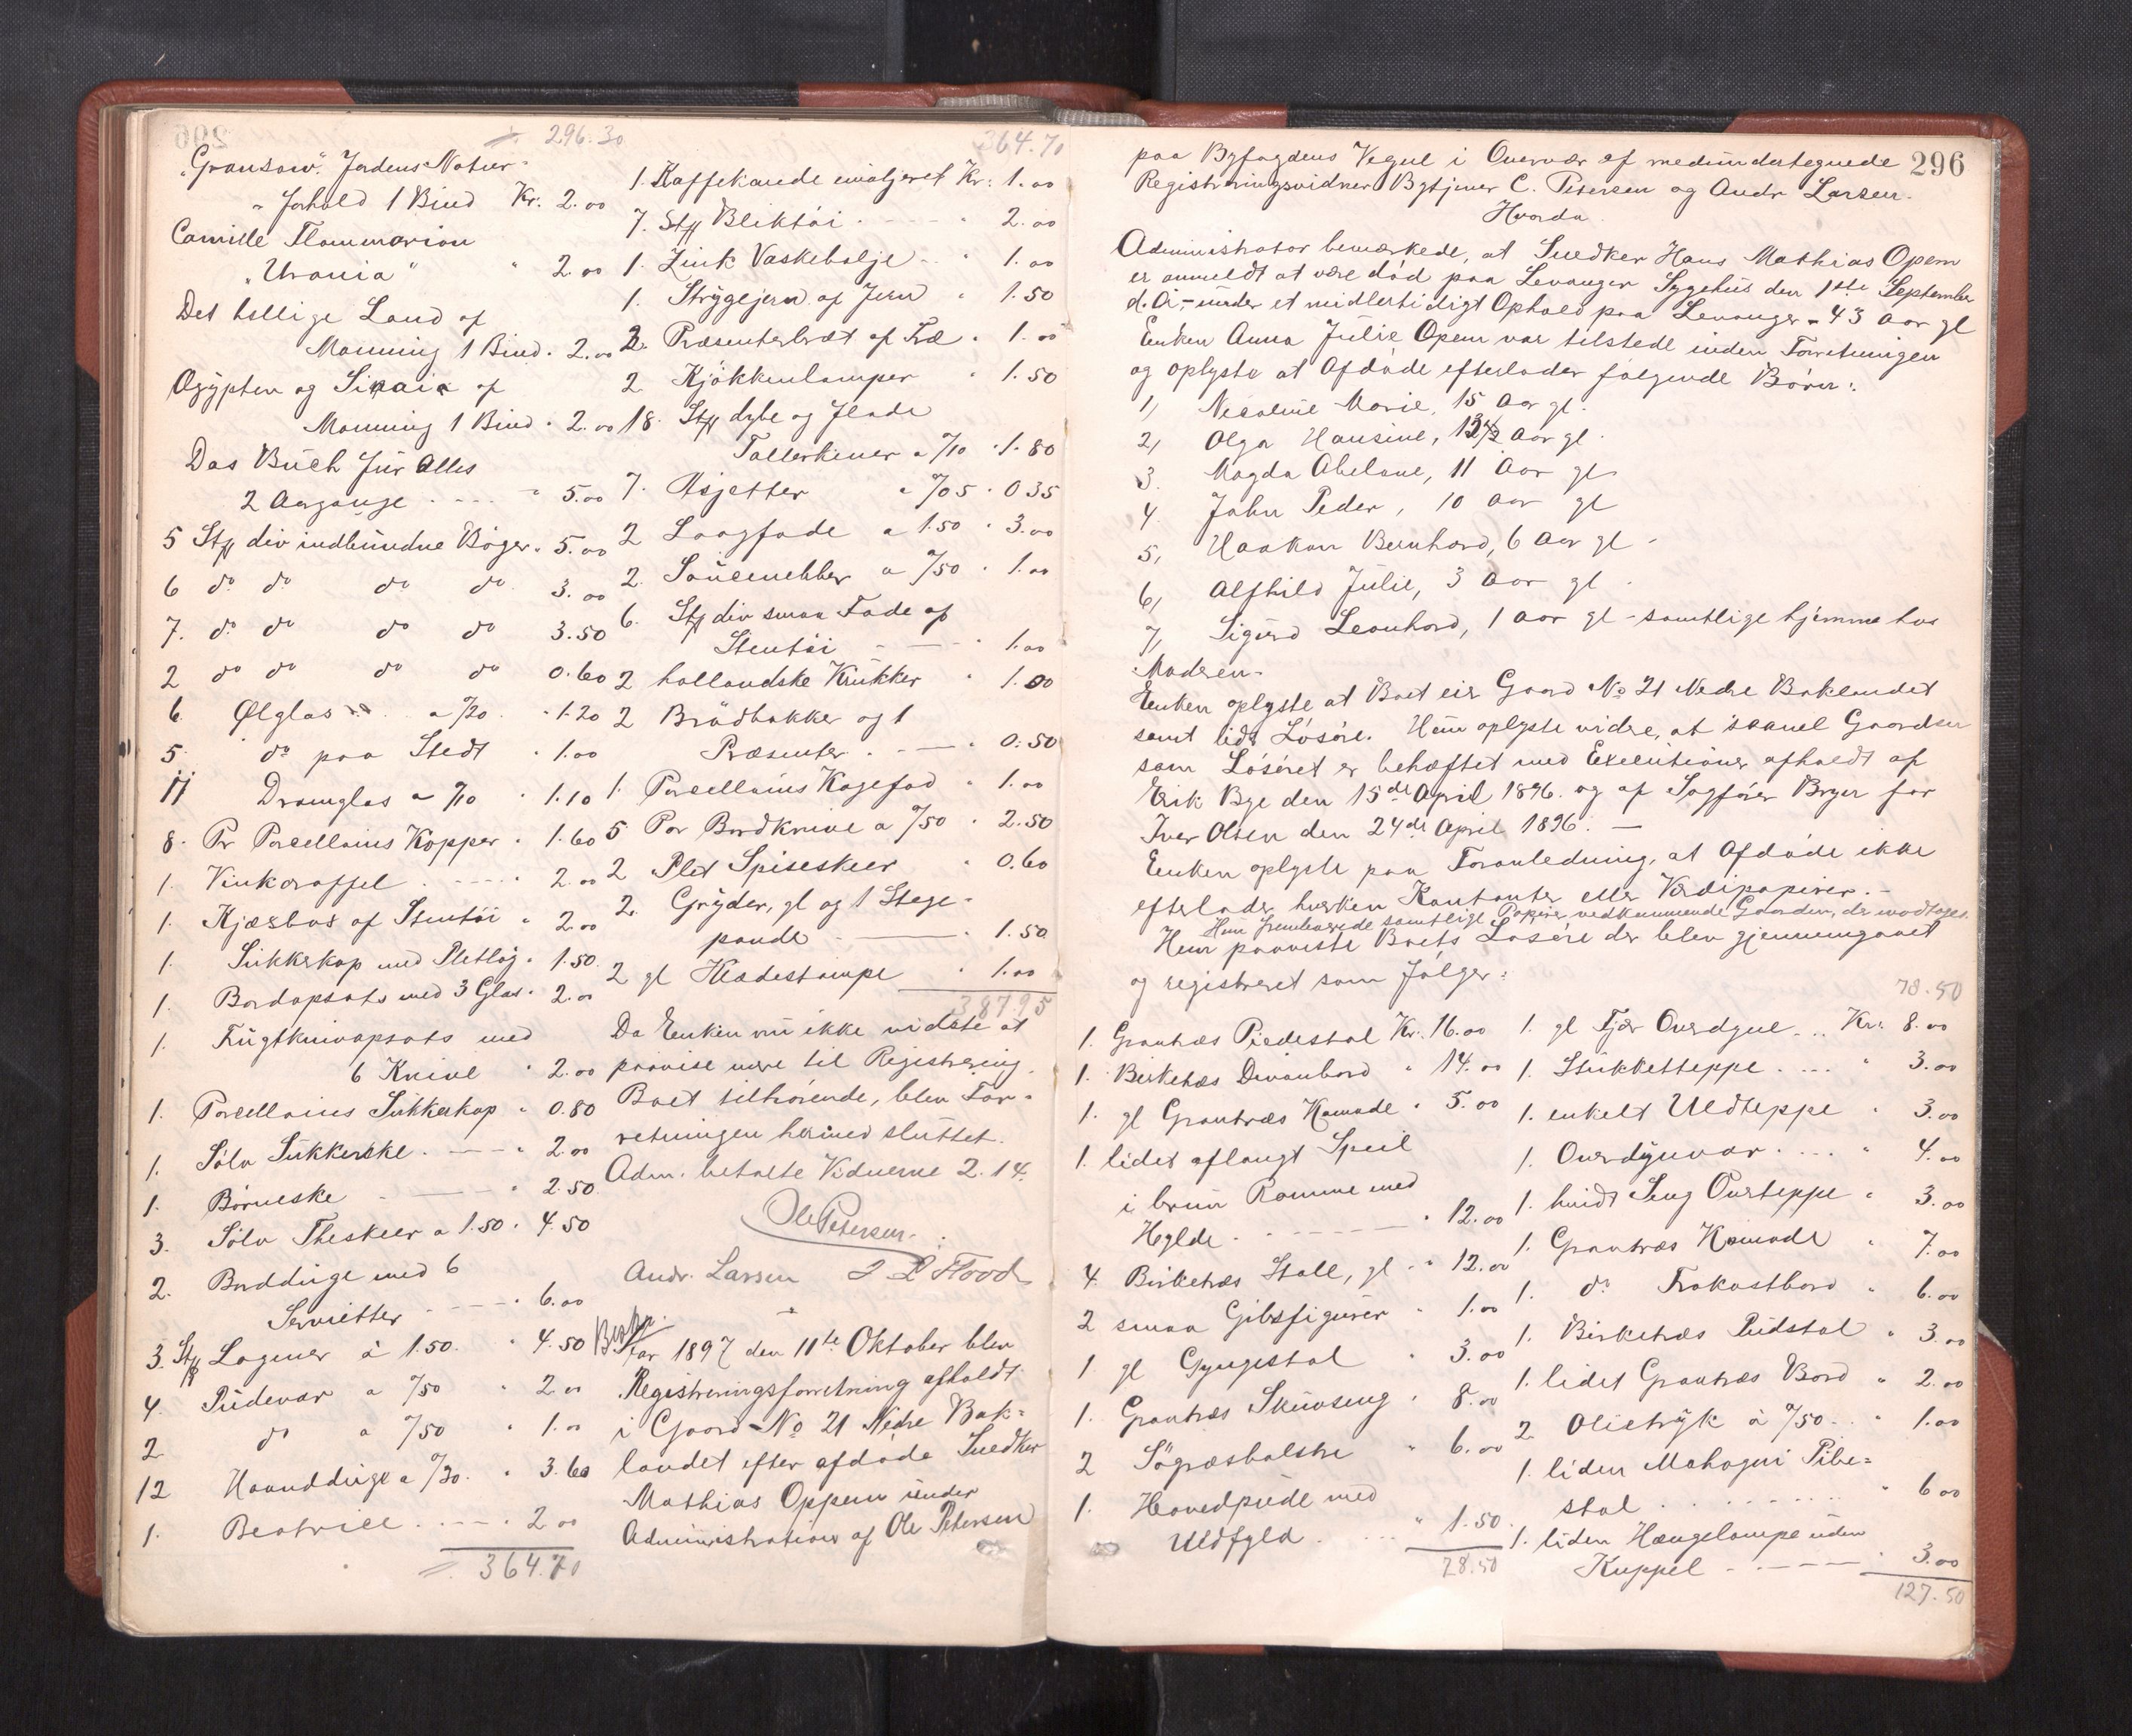 296.30
"Gransow". Jordens Natur-
" forhold 1 Bind Kr. 2.00
Camille Flammarion
"Urania" " 2.00
Det hellige Land af
Manning 1 Bind " 2.00
Ægypten og Sinaia af
Manning 1 Bind " 2.00
Das Buch für Alles
2 Aargange " 5.00
5 Stk div indbundne Bøger " 5.00
6 do do do do 3.00
7. do do do do 3.50
2 do do do do 0.60
6 Ølglas a 0/20 " 1.20
5 do paa Stedt " 1.00
11 Dramglas a 0/10 " 1.10
8. Pr Porcellains Kopper " 1.60
1. Vinkaraffel " 2.00
1. Kjæsbos af Stentøi " 2.00
1. Sukkerkop med Pletlåg " 1.50
1. Bordopsats med 3 Glas " 2.00
1. Frugtknivopsats med
6 Knive " 2.00
1. Porcellains Sukkerkop " 0.80
1. Sølv Sukkerske " 2.00
1. Børneske " 2.50
3. Sølv Theskeer a 1.50 " 4.50
2. Borddúge med 6
Servietter " 6.00
3. Stk Lagner á 1.50 " 4.50
4. Pudevar a 0/50 " 2.00
2 do a 0/50 " 1.00
12 Haanddúge a 0/30 " 3.60
1. Beatrice " 2.00
364.70
364.70
1. Kaffekande emaljeret Kr. 1.00
7. Stk Bliktøi " 2.00
1. Zink Vaskebalje " 1.00
1. Strygejern af Jern " 1.50
2. Præsenterbræt af Træ " 1.00
2 Kjøkkenlamper " 1.50
18. Stk dybe og flade
Tallerkener a 0/10 " 1.80
7. Asjetter a 0/05 " 0 35
2 Laagfade a 1.50 " 3.00
2. Sausenebber a 0/50 " 1.00
6. Stk div smaa Fade af
Stentøi " 1.00
2 hollandske Krukker " 1.00
2 Brødbakker og 1
Præsenter " 0.50
1. Porcellains Kagefad " 1.00
5 Par Bordknive a 0/50 " 2.50
2 Plet Spiseskeer " 0.60
2. Gryder, gl og 1 Stege-
pande " 1.50
2 gl Klædestampe " 1.00
387.95
Da Enken nu ikke vidste at
paavise mere til Registrering
Boet tilhørende, blev For-
retningen hermed sluttet.
Adm. betalte Vidnerne 2.14.
Ole Petersen.
Andr. Larsen Flood
Aar 1897 den 11te Oktober blev
Registreringsforretning afholdt
i Gaard No 21 Nedre Bak-
landet efter afdøde Snedker
Mathias Oppem under
Administration af Ole Petersen
296
paa Byfogdens Vegne i Overvær af medundertegnede
Registreringsvidner Bytjener C. Petersen og Andr Larsen.
Hvorda
Administrator bemærkede, at Snedker Hans Mathias Opem
er anmeldt at være død paa Levanger Sygehus den 1ste September
d. A. - under et midlertidigt Ophold paa Levanger - 43 Aar gl
Enken Anna Julie Opem var tilstede under Forretningen
og oplyste at Afdøde efterlader følgende Børn:
1, Nicoline Marie, 15 Aar gl.
2, Olga Hansine, 13 1/2 Aar gl.
3. Magda Abelone, 11 Aar gl
4 John Peder, 10 Aar gl
5, Haakon Bernhard, 6 Aar gl -
6, Alfhild Julie, 3 Aar gl -
7, Sigurd Leonhard, 1 Aar gl - samtlige hjemme hos
Moderen.
Enken oplyste at Boet eier Gaard No 21 Nedre Baklandet
samt lidt Løsøre. Hun oplyste videre, at saavel Gaarden
som Løsøret er behæftet med Executioner afholdt af
Erik Bye den 15de April 1896. og af Sagfører Bryn for
Iver Olsen den 24de April 1896. -
Enken oplyste paa Foranledning, at Afdøde ikke
efterlader hverken Kontanter eller Værdipapirer. -
Hun fremleverede samtlige Papirer vedkommende Gaarden, der modtoges.
Hun paaviste Boets Løsøre der blev gjennemgaaet
og registreret som følger:
1. Grantræs Piedestal Kr. 16.00
1. Birketræs Divanbord " 14.00
1. gl Grantræs Komode " 5.00
1. lidet aflangt Speil
i brun Ramme med
Hylde " 12.00
4 Birketræs Stole, gl " 12.00
2 smaa Gibsfigurer " 1.00
1 gl Gyngestol " 3.00
1. Grantræs Skuvseng " 8.00
2 Søgræsbolstre " 6.00
1. Hovedpude med
Uldfyld " 1.50
78.50
78.50
1. gl Fjær Overdyne Kr. 8.00
1. Stukketteppe " 3.00
1. enkelt Uldteppe " 3.00
1. Overdynvar " 4.00
1. hvidt Seng Overteppe " 3.00
1. Grantræs Komode " 7.00
1. do Frokostbord " 6.00
1. Birketræs Pidstol " 3.00
1. lidet Grantræs Bord " 2.00
2 Olietryk á 0/50 " 1.00
1. liden Mahogni Pibe-
stol " 6 00
1. liden Hængelampe uden
Kuppel " 3.00
127.50